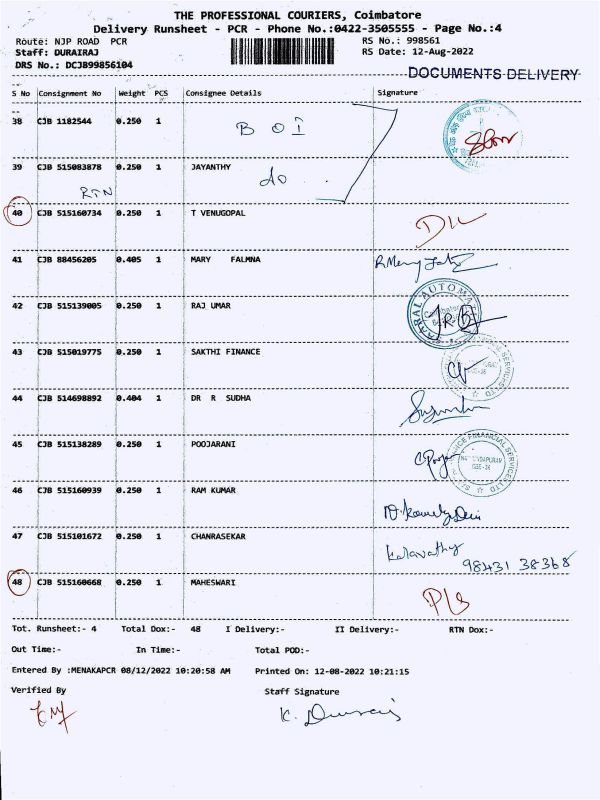 THE PROFESSIONAL COURIERS, Coimbatore
Delivery Runsheet - PCR - Phone No.:0422-3505555 - Page No.:4
Route: NJP ROAD PCR RS No.: 998561
Staff: DURAIRAJ RS Date: 12-Aug-2022
DRS No.: DCJB99856104
DOCUMENTS DELIVERY
S No Consignment No Weight PCS Consignee Details Signature
38 CJB 1182544 0.250 1 BOI
39 CJB 515083878 0.250 1 JAYANTHY do
RTN
40 CJB 515160734 0.250 1 T VENUGOPAL
41 CJB 88456205 0.405 1 MARY FALMNA
42 CJB 515139005 0.250 1 RAJ UMAR
43 CJB 515019775 0.250 1 SAKTHI FINANCE
44 CJB 514698892 0.404 1 DR R SUDHA
45 CJB 515138289 0.250 1 POOJARANI
46 CJB 515160939 0.250 1 RAM KUMAR
47 CJB 515101672 0.250 1 CHANRASEKAR Kalavathy
98431 38368
48 CJB 515160668 0.250 1 MAHESWARI
Tot. Runsheet:- 4 Total Dox:- 48 I Delivery:- II Delivery:- RTN Dox:-
Out Time:- In Time:- Total POD:-
Entered By :MENAKAPCR 08/12/2022 10:20:58 AM Printed On: 12-08-2022 10:21:15
Verified By Staff Signature